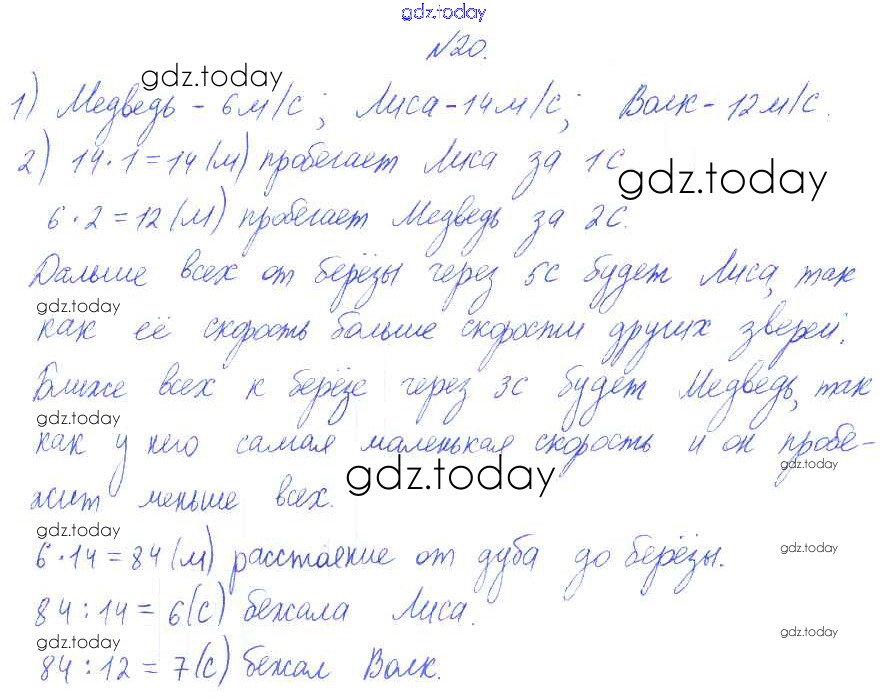 gdz.today
№20.
gdz.today
1) Медведь - 6м/с; Лиса - 14м/с; Волк - 12м/с.
2) 14·1=14(м) пробегает Лиса за 1с.
gdz.today
6·2=12(м) пробегает Медведь за 2с.
Дальше всех от берёзы через 5с будет Лиса, так
gdz.today
как её скорость больше скорости других зверей.
Ближе всех к берёзе через 3с будет Медведь, так
gdz.today
как у него самая маленькая скорость и он пробе-
gdz.today
gdz.today
жит меньше всех.
gdz.today
6·14=84(м) расстояние от дуба до берёзы.
gdz.today
84:14=6(с) бежала Лиса.
gdz.today
gdz.today
84:12=7(с) бежал Волк.